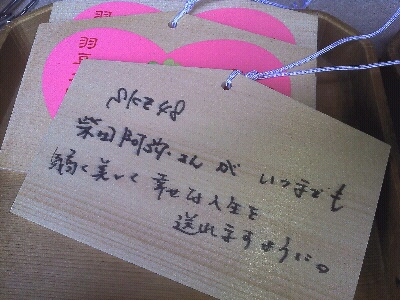 SKE48
柴田阿弥さんが いつまでも
強く美しく幸せな人生を
送れますように。